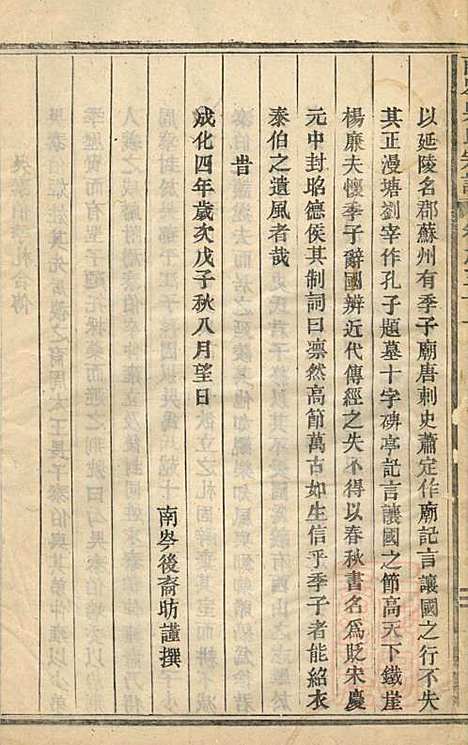 以延陵名郡蘇州有季子廟唐刺史蕭定作廟記言讓國之行不失
其正漫塘劉宰作孔子題墓十字碑亭記言讓國之節高天下鐵崖
楊廉夫懷季子辭國辨近代傳經之失不得以春秋書名爲貶宋慶
元中封昭德侯其制詞曰凜然高節萬古如生信乎季子者能紹衣
泰伯之遺風者哉
旹
成化四年歲次戊子秋八月望日
南岑後裔昉謹撰